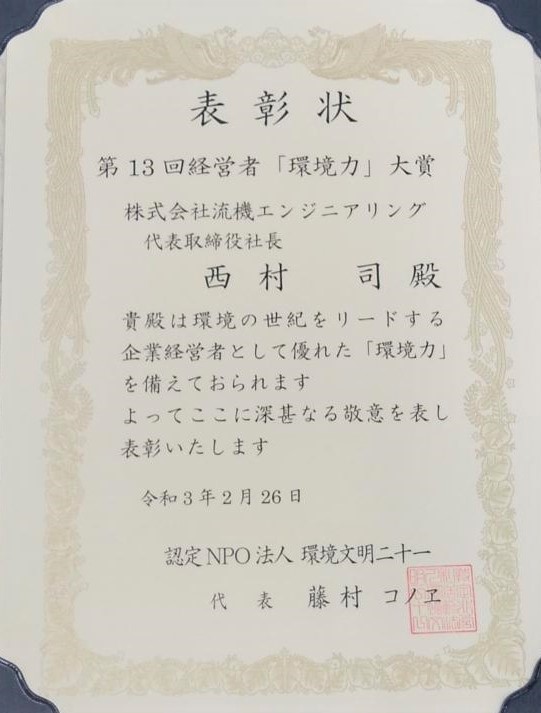 表彰状
第13回経営者「環境力」大賞
株式会社流機エンジニアリング
代表取締役社長
西村 司 殿
貴殿は環境の世紀をリードする
企業経営者として優れた「環境力」
を備えておられます
よってここに深甚なる敬意を表し
表彰いたします
令和3年2月26日
認定NPO法人 環境文明二十一
代表 藤村 コノヱ